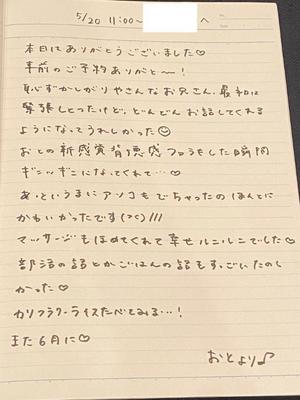 5/20 11:00〜 へ
本日はありがとうございました♡
事前のご予約ありがと〜!
恥ずかしがりやさんなお兄さん、最初は
緊張しとったけど、どんどんお話してくれる
ようになってうれしかった☺
おとの新感覚背徳感フェラをした瞬間
ギンッギンになってくれて…♡
あっというまにアソコもでちゃったのほんとに
かわいかったです(>c<)///
マッサージもほめてくれて幸せルンルンでした♡
部活の話とかごはんの話もすっごいたのし
かった♡
カリフラワーライスたべてみる…!
また6月に♡
おとより♪